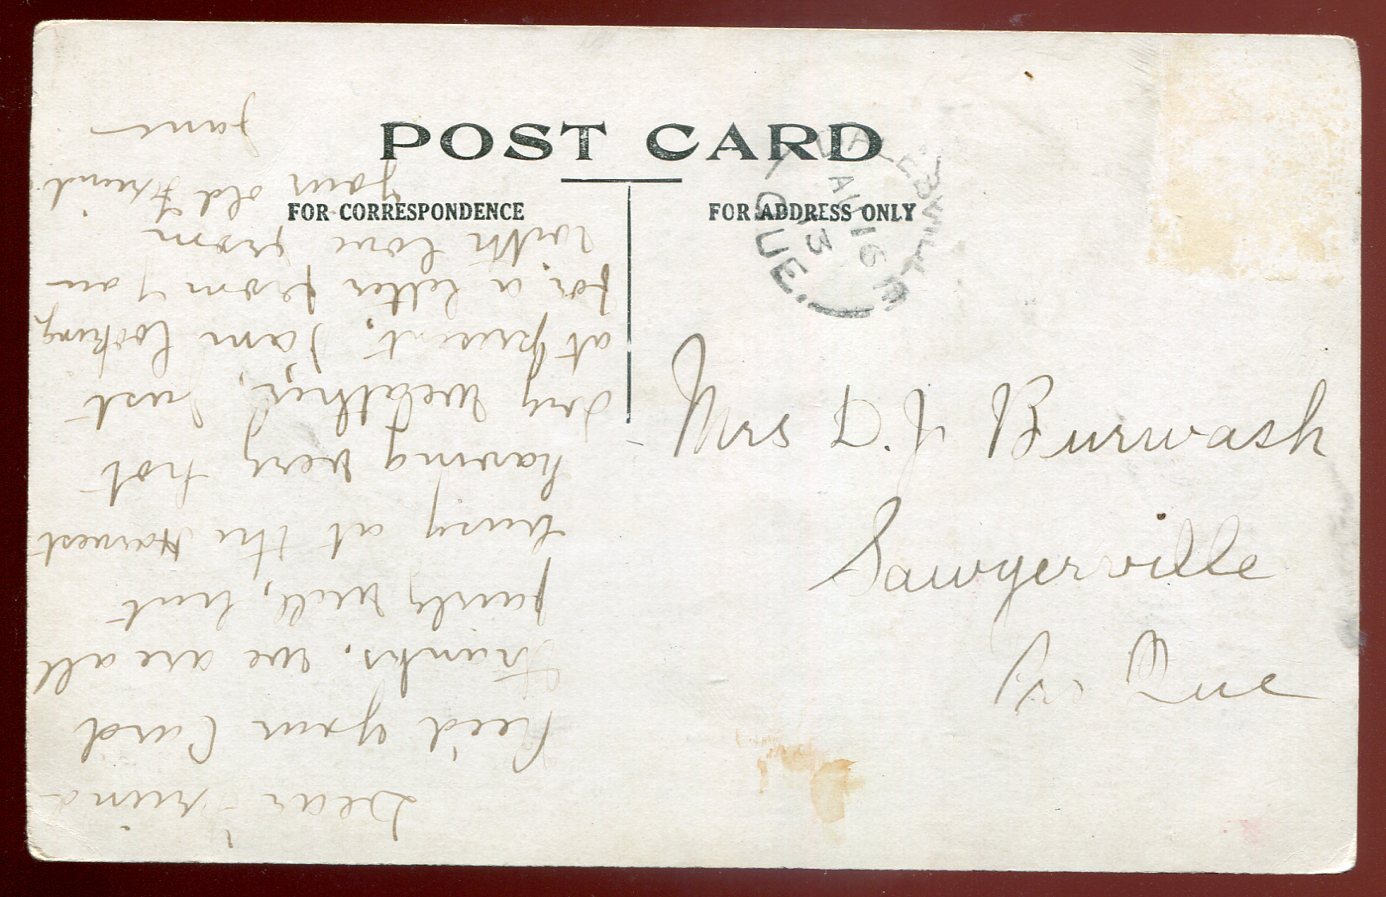 POST CARD
FOR CORRESPONDENCE
FOR ADDRESS ONLY
AU 16
13
QUE.
Mrs D. J Burwash
Sawyerville
Pr. Que
Dear Friend
Rec'd your Card
thanks. we are all
fairly well, but
busy at the Harvest
having very hot
dry weather, just
at present, I am looking
for a letter from you
with love from
your old Friend
Jane